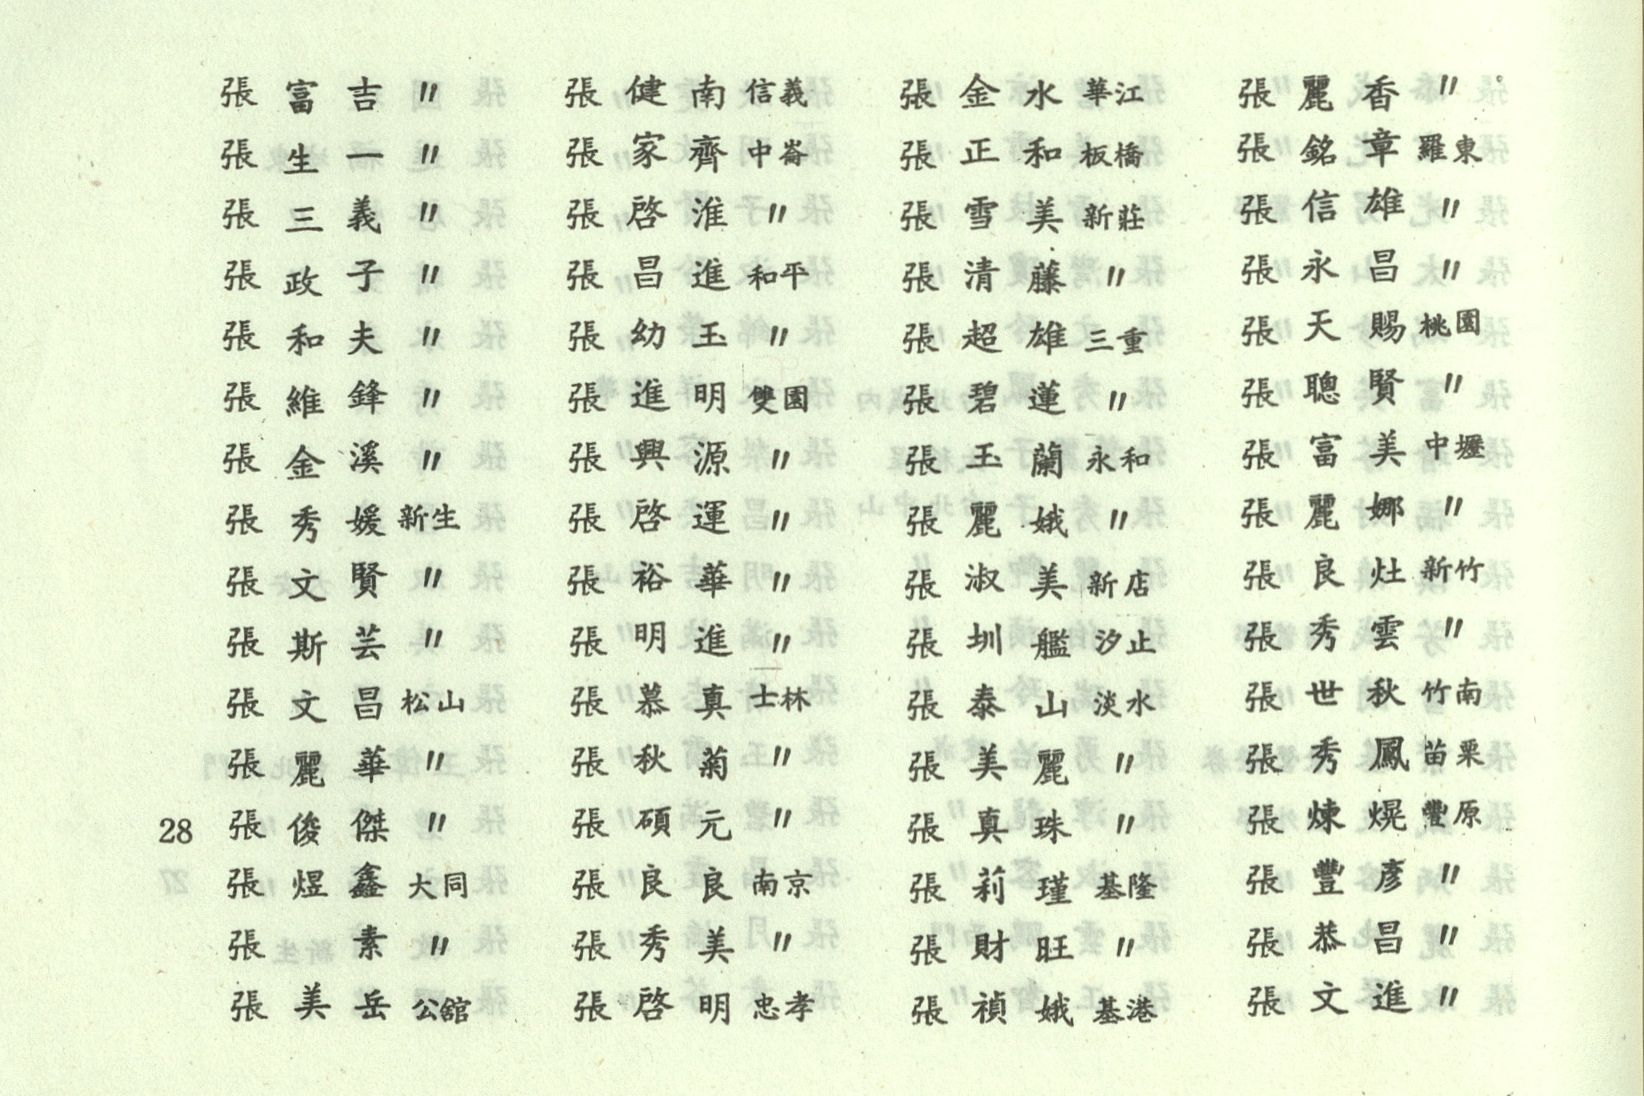 張富吉〃
張生一〃
張三義〃
張政子〃
張和夫〃
張維鋒〃
張金溪〃
張秀媛新生
張文賢〃
張斯芸〃
張文昌松山
張麗華〃
張俊傑〃
張煜鑫大同
張素〃
張美岳公館
張健南信義
張家齊中崙
張啓淮〃
張昌進和平
張幼玉〃
張進明雙園
張興源〃
張啓運〃
張裕華〃
張明進〃
張慕真士林
張秋菊〃
張碩元〃
張良良南京
張秀美〃
張啓明忠孝
張金水華江
張正和板橋
張雪美新莊
張清藤〃
張超雄三重
張碧蓮〃
張玉蘭永和
張麗娥〃
張淑美新店
張圳艦汐止
張泰山淡水
張美麗〃
張真珠〃
張莉瑾基隆
張財旺〃
張禎娥基港
張麗香〃
張銘章羅東
張信雄〃
張永昌〃
張天賜桃園
張聰賢〃
張富美中壢
張麗娜〃
張良灶新竹
張秀雲〃
張世秋竹南
張秀鳳苗栗
張煉熀豐原
張豐彥〃
張恭昌〃
張文進〃
28